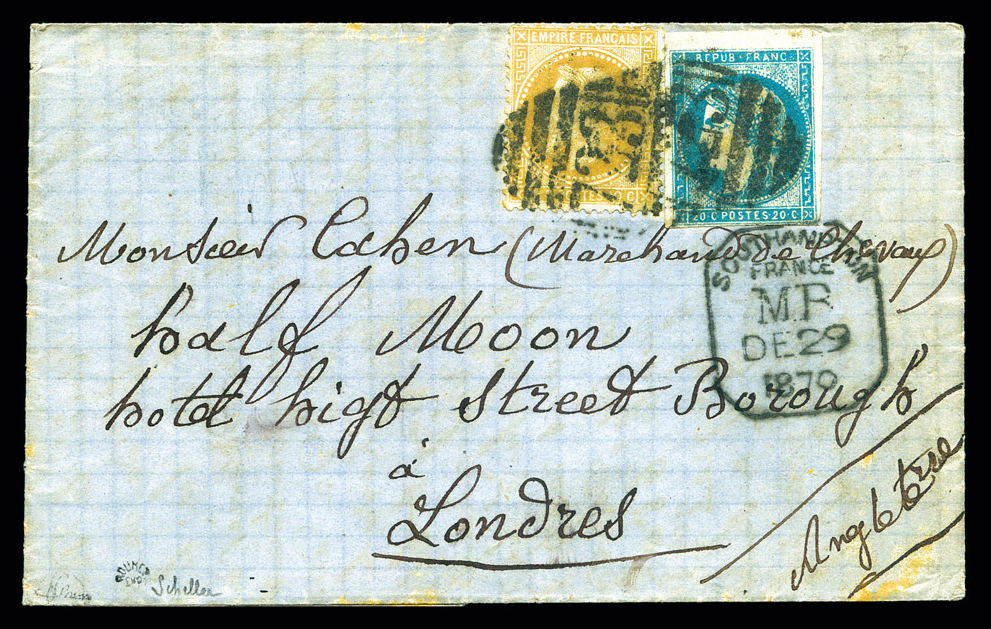 EMPIRE FRANCAIS
REPUB·FRANC
20·C POSTES·20·C
Monsieur Cahen (Marchand de Chevaux)
SOUTHAMPTON
FRANCE
M.B
DE 29
1870
half Moon
hotel higt Street Borough
à
Londres
Angleterre
ROUMET
Scheller